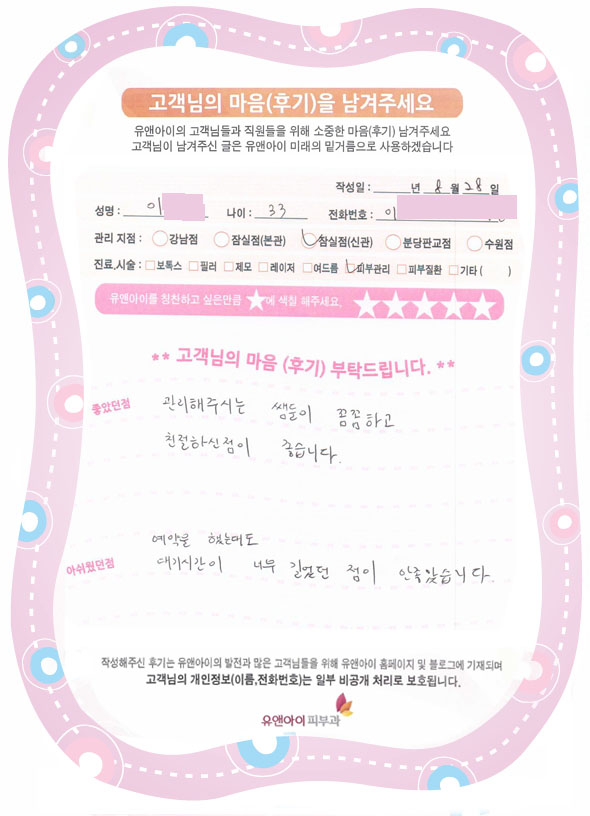 고객님의 마음(후기)을 남겨주세요
유앤아이의 고객님들과 직원들을 위해 소중한 마음(후기) 남겨주세요
고객님이 남겨주신 글은 유앤아이 미래의 밑거름으로 사용하겠습니다
작성일 : 년 8 월 28 일
성명 : 이 나이 : 33 전화번호 : 01
관리 지점 : 강남점 잠실점(본관) 잠실점(신관) 분당판교점 수원점
진료,시술 : 보톡스 필러 제모 레이저 여드름 피부관리 피부질환 기타 ( )
유앤아이를 칭찬하고 싶은만큼 ★에 색칠 해주세요. ★★★★★
** 고객님의 마음 (후기) 부탁드립니다. **
좋았던점 관리해주시는 쌤들이 꼼꼼하고
친절하신점이 좋습니다.
예약을 했는데도
아쉬웠던점 대기시간이 너무 길었던 점이 안좋았습니다.
작성해주신 후기는 유앤아이의 발전과 많은 고객님들을 위해 유앤아이 홈페이지 및 블로그에 기재되며
고객님의 개인정보(이름,전화번호)는 일부 비공개 처리로 보호됩니다.
유앤아이피부과